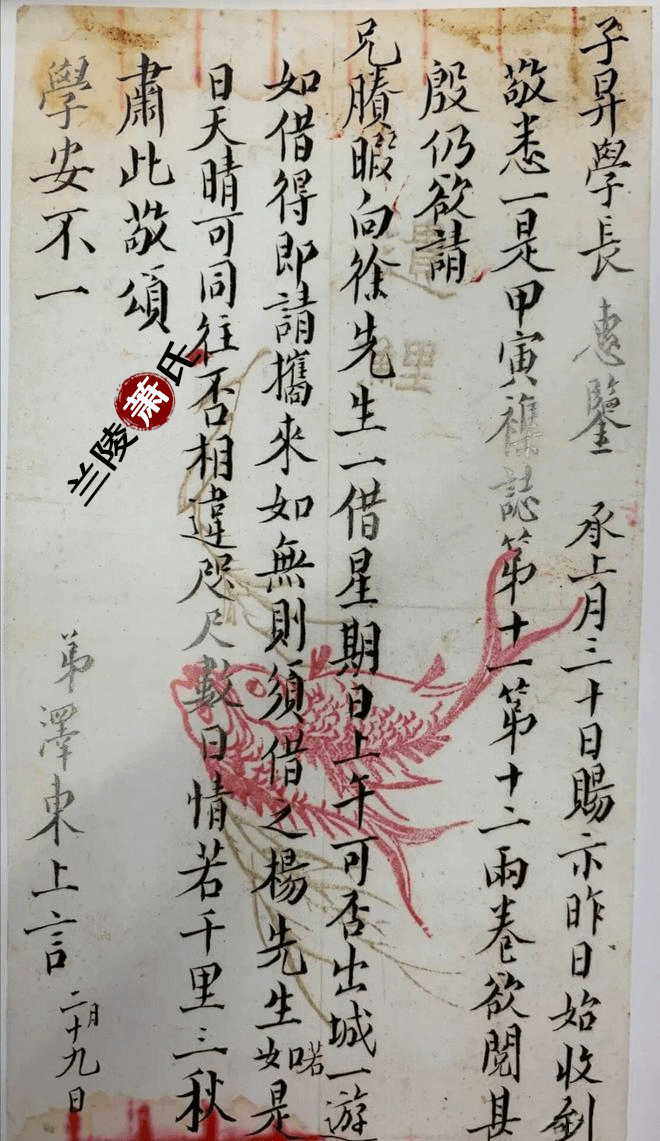 子昇學長 惠鑒 承上月三十日賜示昨日始收到
敬悉一是甲寅雜誌第十一第十二兩卷欲閱甚
殷仍欲請
兄賸暇向徐先生一借星期日上午可否出城一遊
如借得即請攜來如無則須借之楊先生如
是
日天晴可同往否相違咫尺數日情若千里三秋
肅此敬頌
學安不一
弟澤東上言 二月十九日
兰陵萧氏